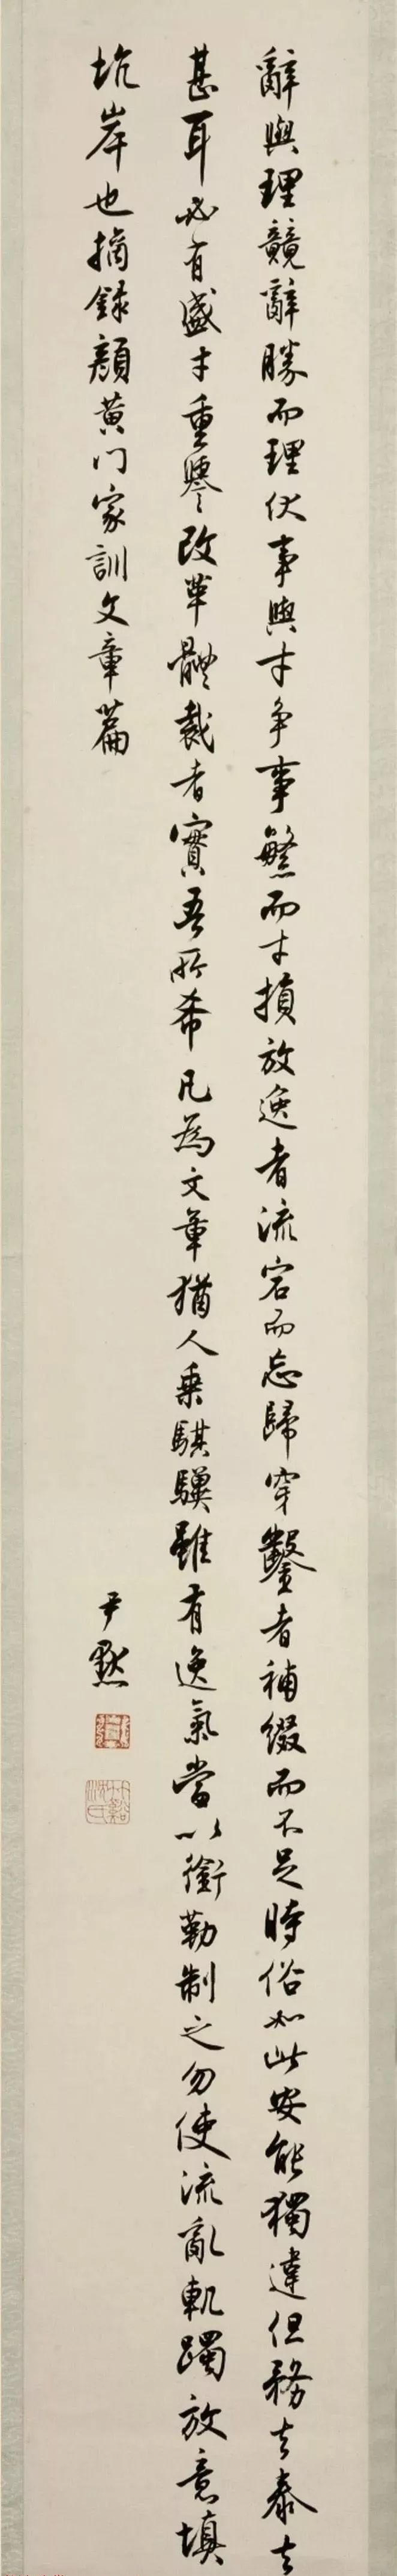 辭與理競辭勝而理伏事與才爭事繁而才損放逸者流宕而忘歸穿鑿者補綴而不足時俗如此安能獨違但務去泰去
甚耳必有盛才重譽改革體裁者實吾所希凡為文章猶人乘騏驥雖有逸氣當以銜勒制之勿使流亂軌躅放意填
坑岸也摘錄顏黃门家訓文章篇
尹默
竹谿沈氏